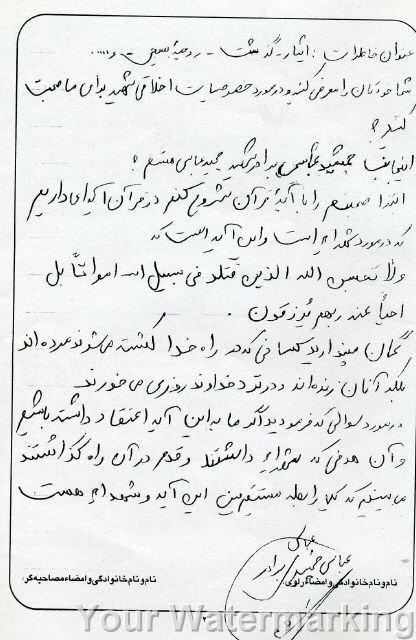 عنوان خاطرات : ایثار - گذشت - روحیهٔ بسیجی و .....
شما خودتان را معرفی کنید و در مورد خصوصیات اخلاقی شهید برای ما صحبت
کنید ؟
اینجانب جمشید عباسی برادر شهید مجید عباسی هستم :
ابتدا صحبتم را با آیهٔ قرآن شروع کنم در قرآن آیه‌ای داریم
که در مورد شهداء است و این آیه اینست که
ولا تحسبن الله الذین قتلو فی سبیل الله امواتاً بل
احیاً عند ربهم یرزقون .
گمان مپندارید کسانی که در راه خدا کشته می‌شوند مرده‌اند
بلکه آنان زنده‌اند و در نزد خداوند روزی می‌خورند
در مورد سوالی که فرمودید اگر ما به این آیه اعتقاد داشته باشیم
و آن هدفی که شهداء داشتند و قدم در آن راه گذاشتند
می‌بینیم که یک رابطه مستقیم بین این آیه و شهداء هست
عباسی
برادر
نام و نام خانوادگی و امضاء راوی: نام و نام خانوادگی و امضاء مصاحبه گر:
Your Watermarking